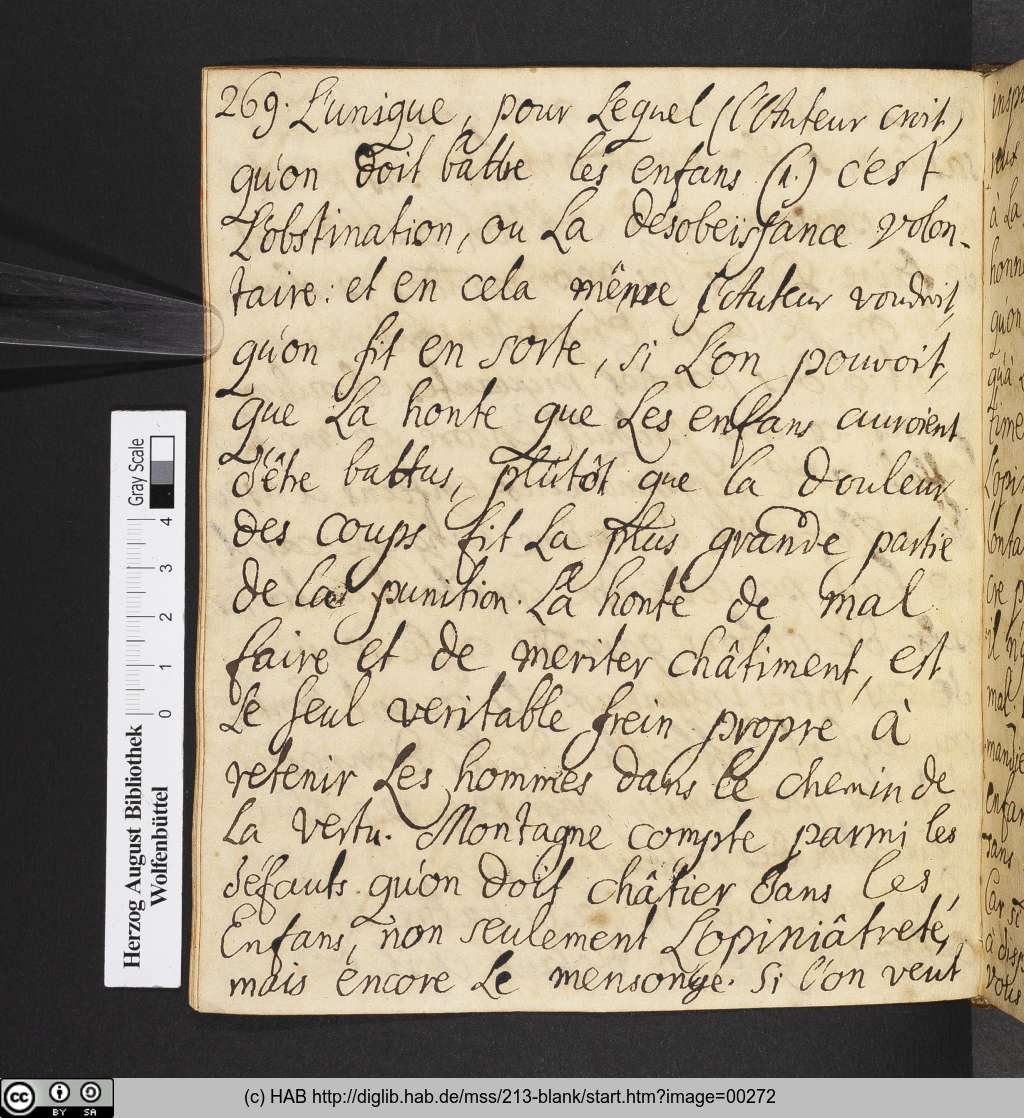 269. L'unique, pour Lequel (l'Auteur croit)
qu'on doit battre les enfans (1.) c'est
L'obstination, ou La desobeissance volon-
taire: et en cela même l'Auteur voudroit,
qu'on fit en sorte, si L'on pouvoit,
que La honte que Les enfans auroient
d'être battus, plutôt que la douleur
des coups fit La plus grande partie
de la punition. La honte de mal
faire et de meriter châtiment, est
Le seul veritable frein propre à
retenir Les hommes dans le chemin de
La vertu. Montagne compte parmi les
défauts qu'on doit châtier dans les
Enfans, non seulement L'opiniâtreté,
mais encore Le mensonge. Si l'on veut
à La
qu'on
qu'à
mal.
Herzog August Bibliothek
Wolfenbüttel
Gray Scale
0 1 2 3 4
cc BY SA
(c) HAB http://diglib.hab.de/mss/213-blank/start.htm?image=00272